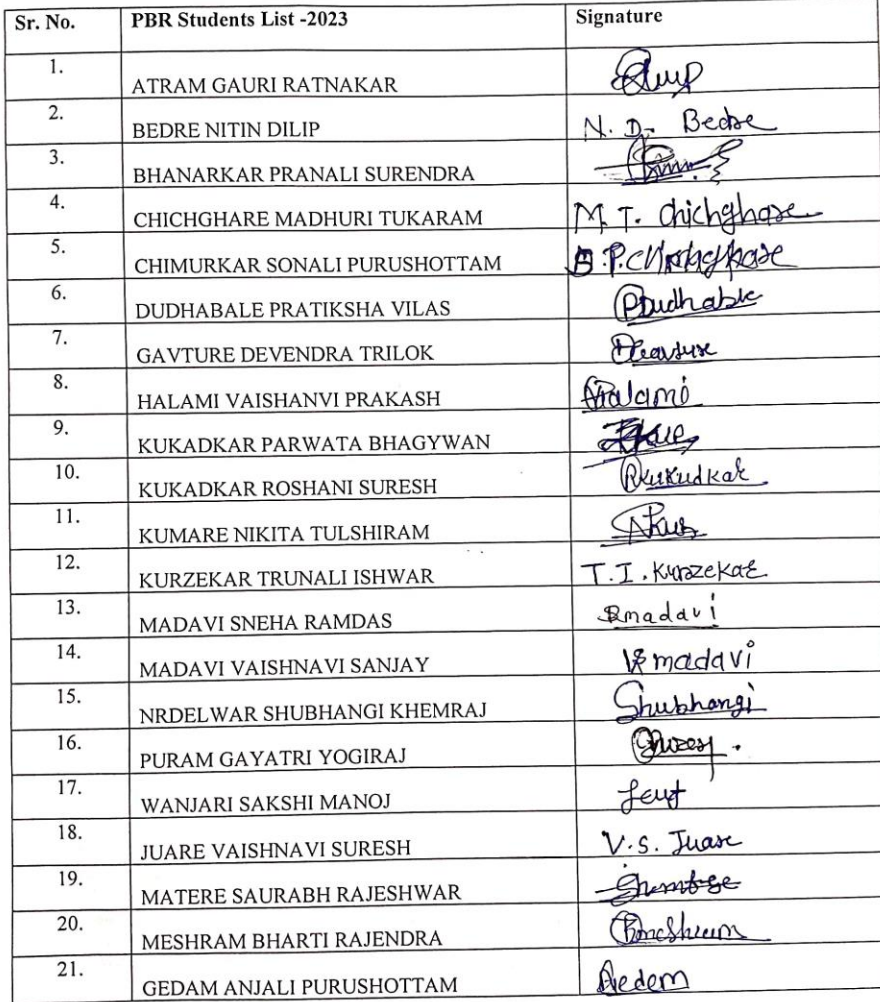 Sr. No. PBR Students List -2023 Signature
1. ATRAM GAURI RATNAKAR
2. BEDRE NITIN DILIP N. D. Bedre
3. BHANARKAR PRANALI SURENDRA
4. CHICHGHARE MADHURI TUKARAM M. T. Chichghare
5. CHIMURKAR SONALI PURUSHOTTAM
6. DUDHABALE PRATIKSHA VILAS PDudhable
7. GAVTURE DEVENDRA TRILOK
8. HALAMI VAISHANVI PRAKASH Halami
9. KUKADKAR PARWATA BHAGYWAN
10. KUKADKAR ROSHANI SURESH RKukudkar
11. KUMARE NIKITA TULSHIRAM
12. KURZEKAR TRUNALI ISHWAR T. I. Kurzekar
13. MADAVI SNEHA RAMDAS Smadavi
14. MADAVI VAISHNAVI SANJAY VS madavi
15. NRDELWAR SHUBHANGI KHEMRAJ Shubhangi
16. PURAM GAYATRI YOGIRAJ
17. WANJARI SAKSHI MANOJ
18. JUARE VAISHNAVI SURESH V. S. Juare
19. MATERE SAURABH RAJESHWAR
20. MESHRAM BHARTI RAJENDRA
21. GEDAM ANJALI PURUSHOTTAM